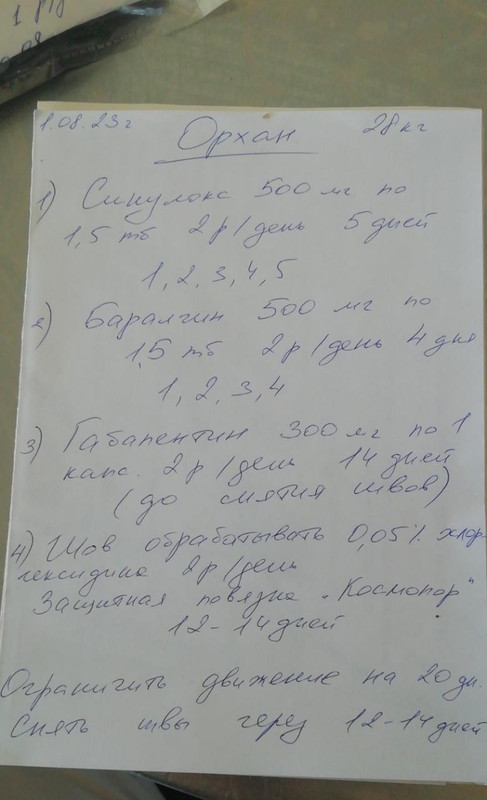 1 р/д
1.08.23г Орхан 28кг
1) Синулокс 500 мг по
1,5 тб 2р/день 5 дней
1, 2, 3, 4, 5
2) Баралгин 500 мг по
1,5 тб 2р/день 4 дня
1, 2, 3, 4
3) Габапентин 300 мг по 1
капс. 2р/день 14 дней
(до снятия швов)
4) Шов обрабатывать 0,05% хлор-
гексидина 2р/день
Защитная повязка „Космопор"
12-14 дней
Ограничить движение на 20 дн.
Снять швы через 12-14 дней